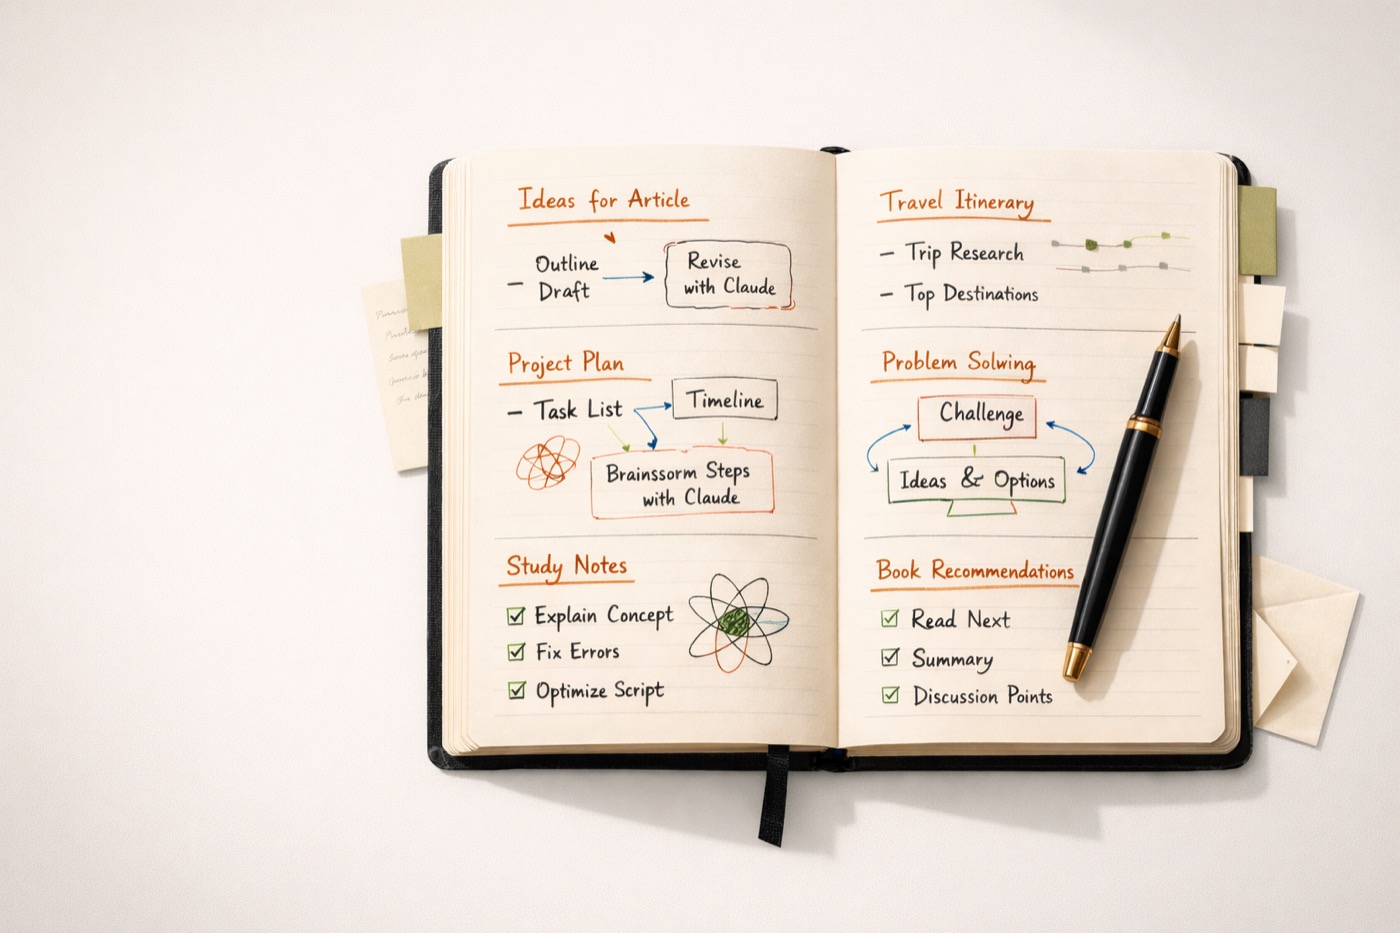 Ideas for Article
– Outline
Draft
Revise
with Claude
Project Plan
– Task List
Timeline
Brainssorm Steps
with Claude
Study Notes
Explain Concept
Fix Errors
Optimize Script
Travel Itinerary
– Trip Research
– Top Destinations
Problem Solving
Challenge
Ideas & Options
Book Recommendations
Read Next
Summary
Discussion Points